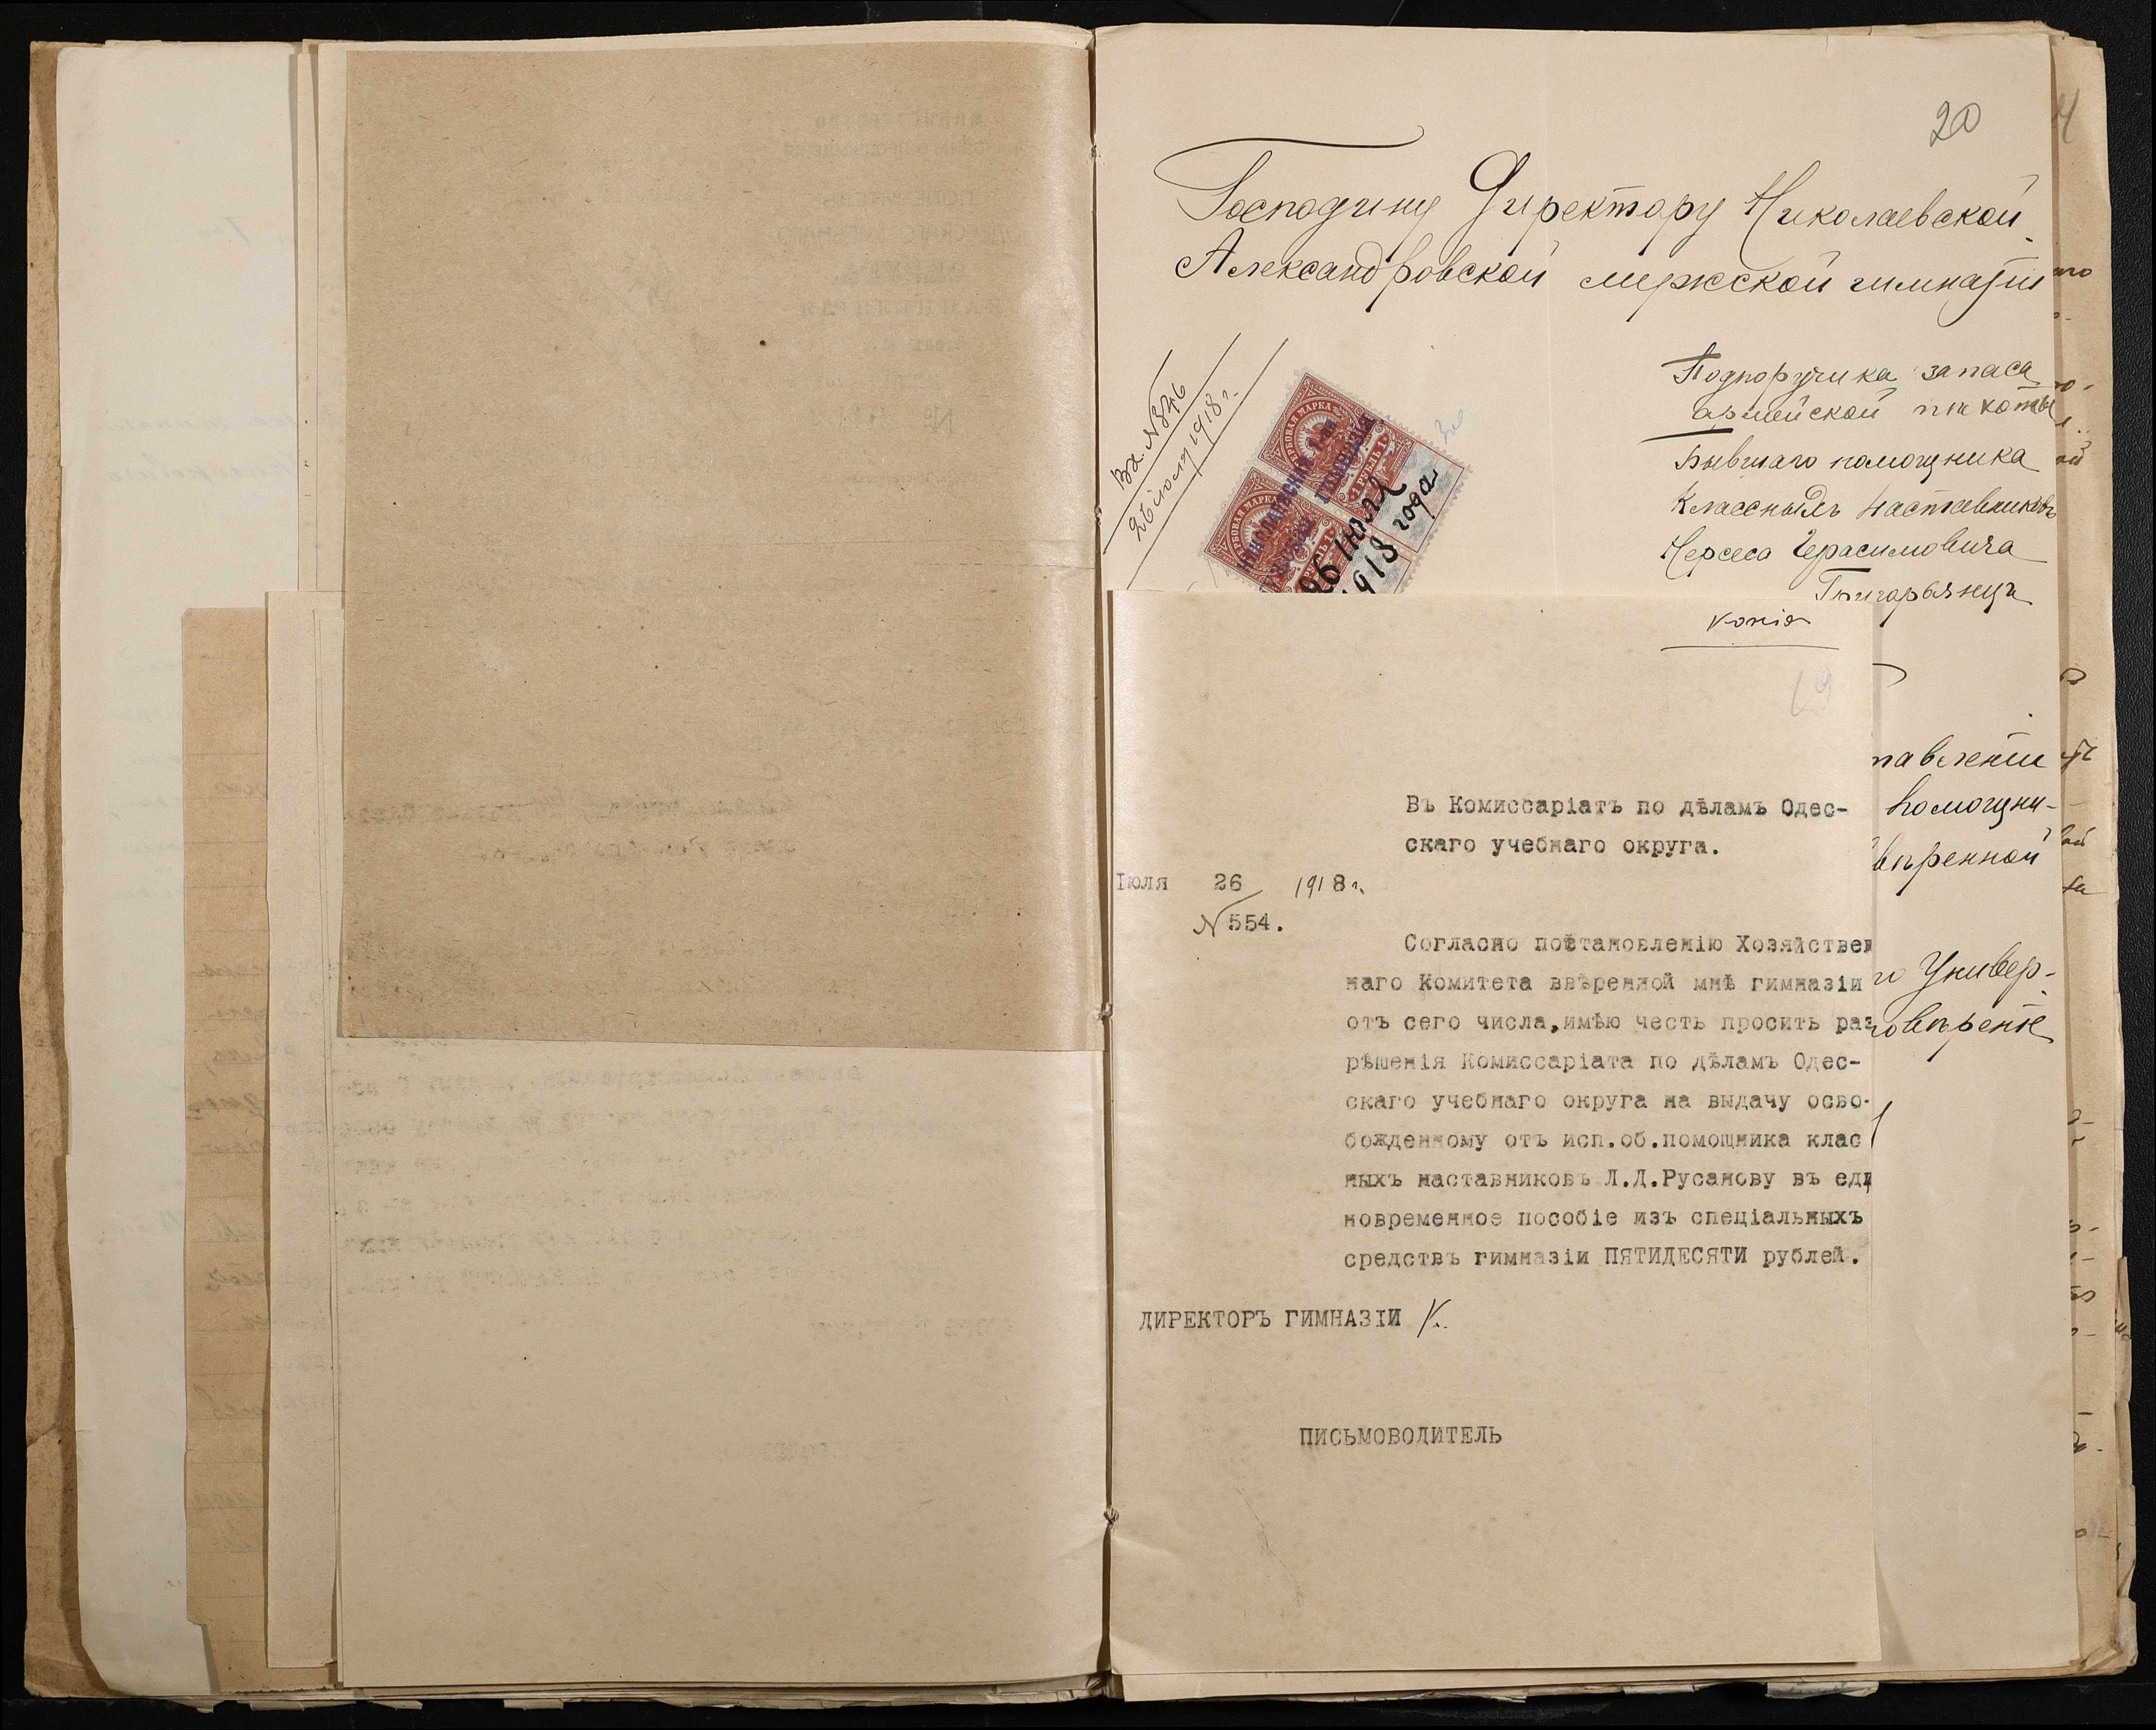 20
Господину Директору Николаевской
Александровской мужской гимназіи
Вх. №846
26 іюля 1918 г.
Подпоручика запаса
армейской пѣхоты
Бывшаго помощника
Классныхъ Наставниковъ
Нерсеса Герасимовича
Григорьянцъ
ГЕРБОВАЯ МАРКА
1 РУБЛЬ 1
ГЕРБОВАЯ МАРКА
РУБЛЬ 1
26 Іюля
1918 года
копія
19
Въ Комиссаріатъ по дѣламъ Одес-
скаго учебнаго округа.
Іюля 26 1918 г.
№ 554.
Согласно постановленію Хозяйствен
наго Комитета ввѣренной мнѣ гимназіи
отъ сего числа,имѣю честь просить раз
рѣшенія Комиссаріата по дѣламъ Одес-
скаго учебнаго округа на выдачу осво-
божденному отъ исп.об.помощника клас
ныхъ наставниковъ Л.Д.Русанову въ еди
новременное пособіе изъ спеціальныхъ
средствъ гимназіи ПЯТИДЕСЯТИ рублей.
ДИРЕКТОРЪ ГИМНАЗІИ
ПИСЬМОВОДИТЕЛЬ
тавленіи
помощни-
ввѣренной
го Универ-